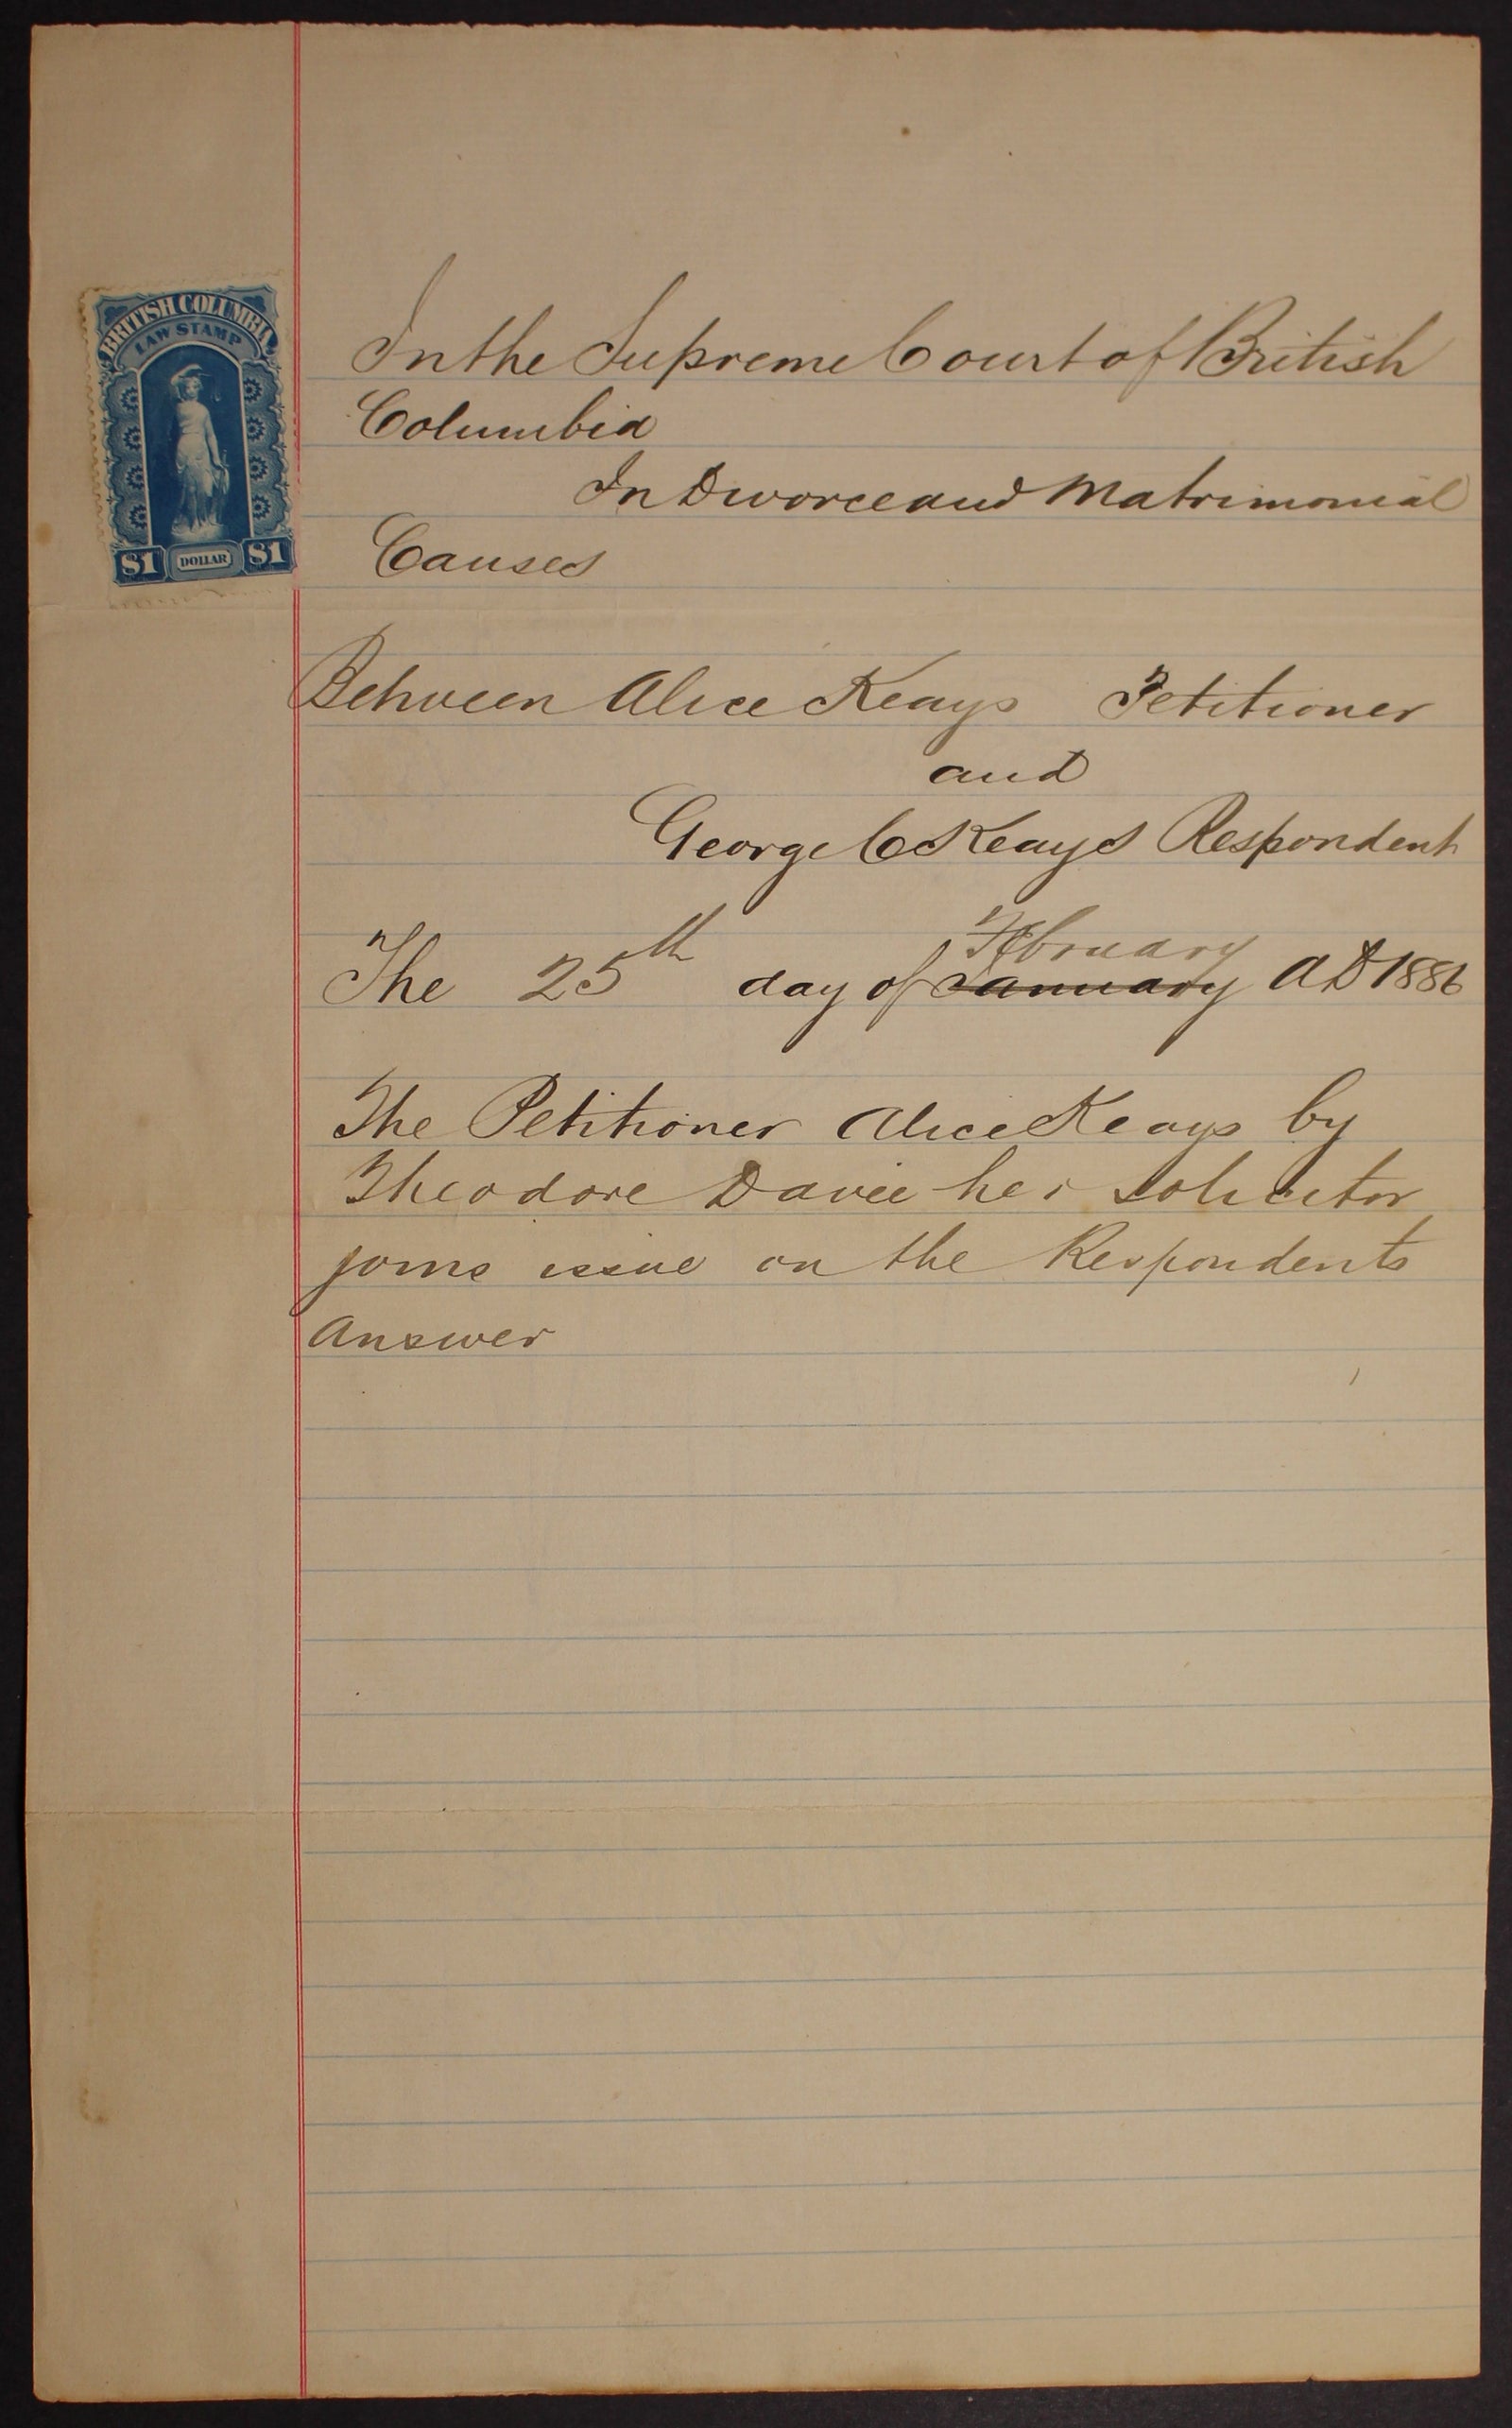 BRITISH COLUMBIA
LAW STAMP
$1 DOLLAR $1
In the Supreme Court of British
Columbia
In Divorce and Matrimonial
Causes
Between Alice Keays Petitioner
and
George C Keays Respondent
February
The 25th day of January AD 1886
The Petitioner Alice Keays by
Theodore Davie her solicitor
joins issue on the Respondents
Answer